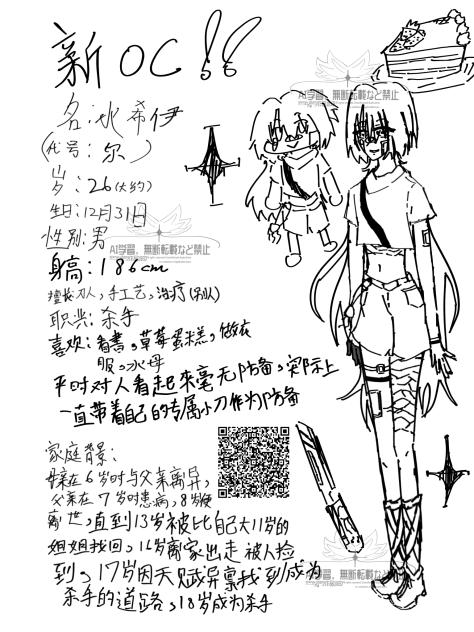 新OC!!
名:水希伊
(代号:尔)
岁:26(大约)
生日:12月31日
性别:男
身高:186cm
擅长刀人,手工艺,治疗(别人)
职业:杀手
喜欢:看書,草莓蛋糕,做衣
服,水母
平时对人看起來毫无防备,实际上
一直带着自己的专属小刀作为防备
家庭背景:
母亲在6岁时与父亲离异,
父亲在7岁时患病,8岁時
离世,直到13岁被比自己大11岁的
姐姐找回,16岁离家出走被人捡
到,17岁因天赋异禀找到成为
杀手的道路,18岁成为杀手
AI学習、無断転載など禁止
AI学習、無断転載など禁止
AI学習、無断転載など禁止